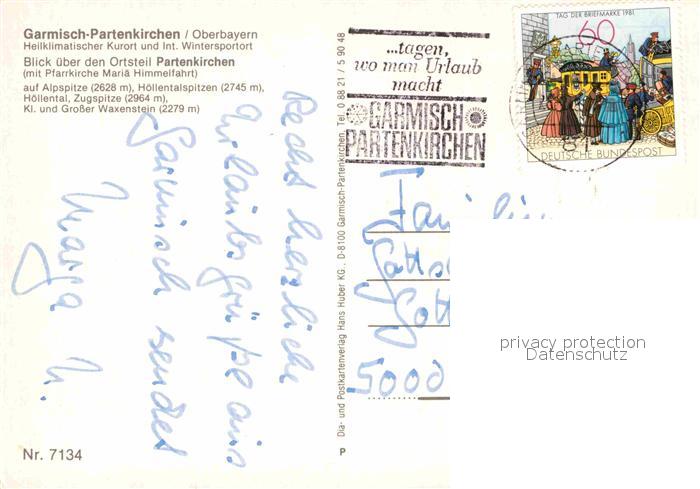 Garmisch-Partenkirchen / Oberbayern
Heilklimatischer Kurort und Int. Wintersportort
Blick über den Ortsteil Partenkirchen
(mit Pfarrkirche Mariä Himmelfahrt)
auf Alpspitze (2628 m), Höllentalspitzen (2745 m),
Höllental, Zugspitze (2964 m),
Kl. und Großer Waxenstein (2279 m)
Recht herzliche
Urlaubsgrüße aus
Garmisch sendet
Marga
Nr. 7134
Dia- und Postkartenverlag Hans Huber KG., D-8100 Garmisch-Partenkirchen, Tel. 0 88 21 / 5 90 48
P
...tagen,
wo man Urlaub
macht
GARMISCH
PARTENKIRCHEN
TAG DER BRIEFMARKE 1981
60
DEUTSCHE BUNDESPOST
5000
privacy protection
Datenschutz